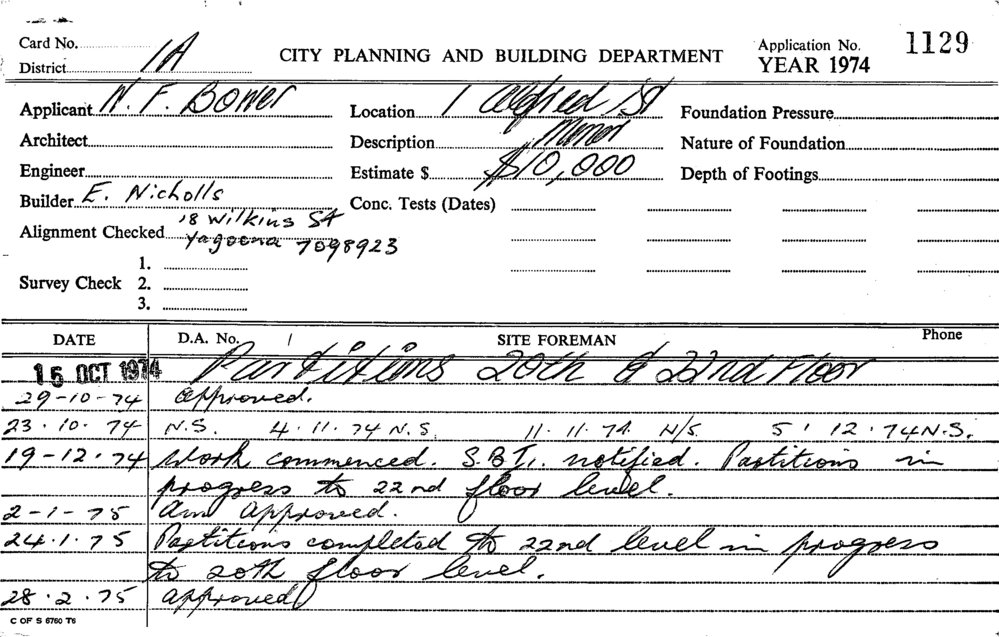 Card No.
District 1A
CITY PLANNING AND BUILDING DEPARTMENT
Application No. 1129
YEAR 1974
Applicant N. F. Bower
Location 1 Alfred St
Foundation Pressure
Architect
Description Minor
Nature of Foundation
Engineer
Estimate $ $10,000
Depth of Footings
Builder E. Nicholls
Conc. Tests (Dates)
18 Wilkins St
Alignment Checked Yagoona 7098923
1.
Survey Check 2.
3.
DATE D.A. No. 1 SITE FOREMAN Phone
15 OCT 1974 Partitions 20th & 22nd Floor
29-10-74 Approved.
23.10.74 N.S. 4.11.74 N.S. 11.11.74. N/S. 5.12.74 N.S.
19-12.74 Work commenced. S.B.I. notified. Partitions in
progress to 22nd floor level.
2-1-75 Am Approved.
24.1.75 Partitions completed to 22nd level in progress
to 20th floor level.
28.2.75 approved
C OF S 6760 T6